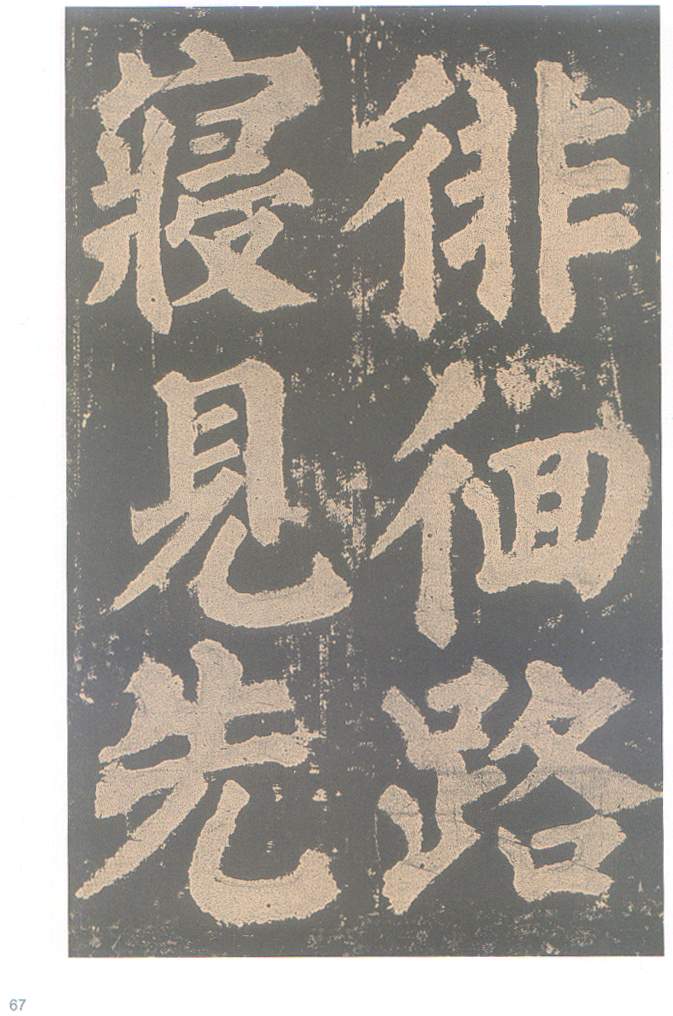 徘徊路
寢見先
67